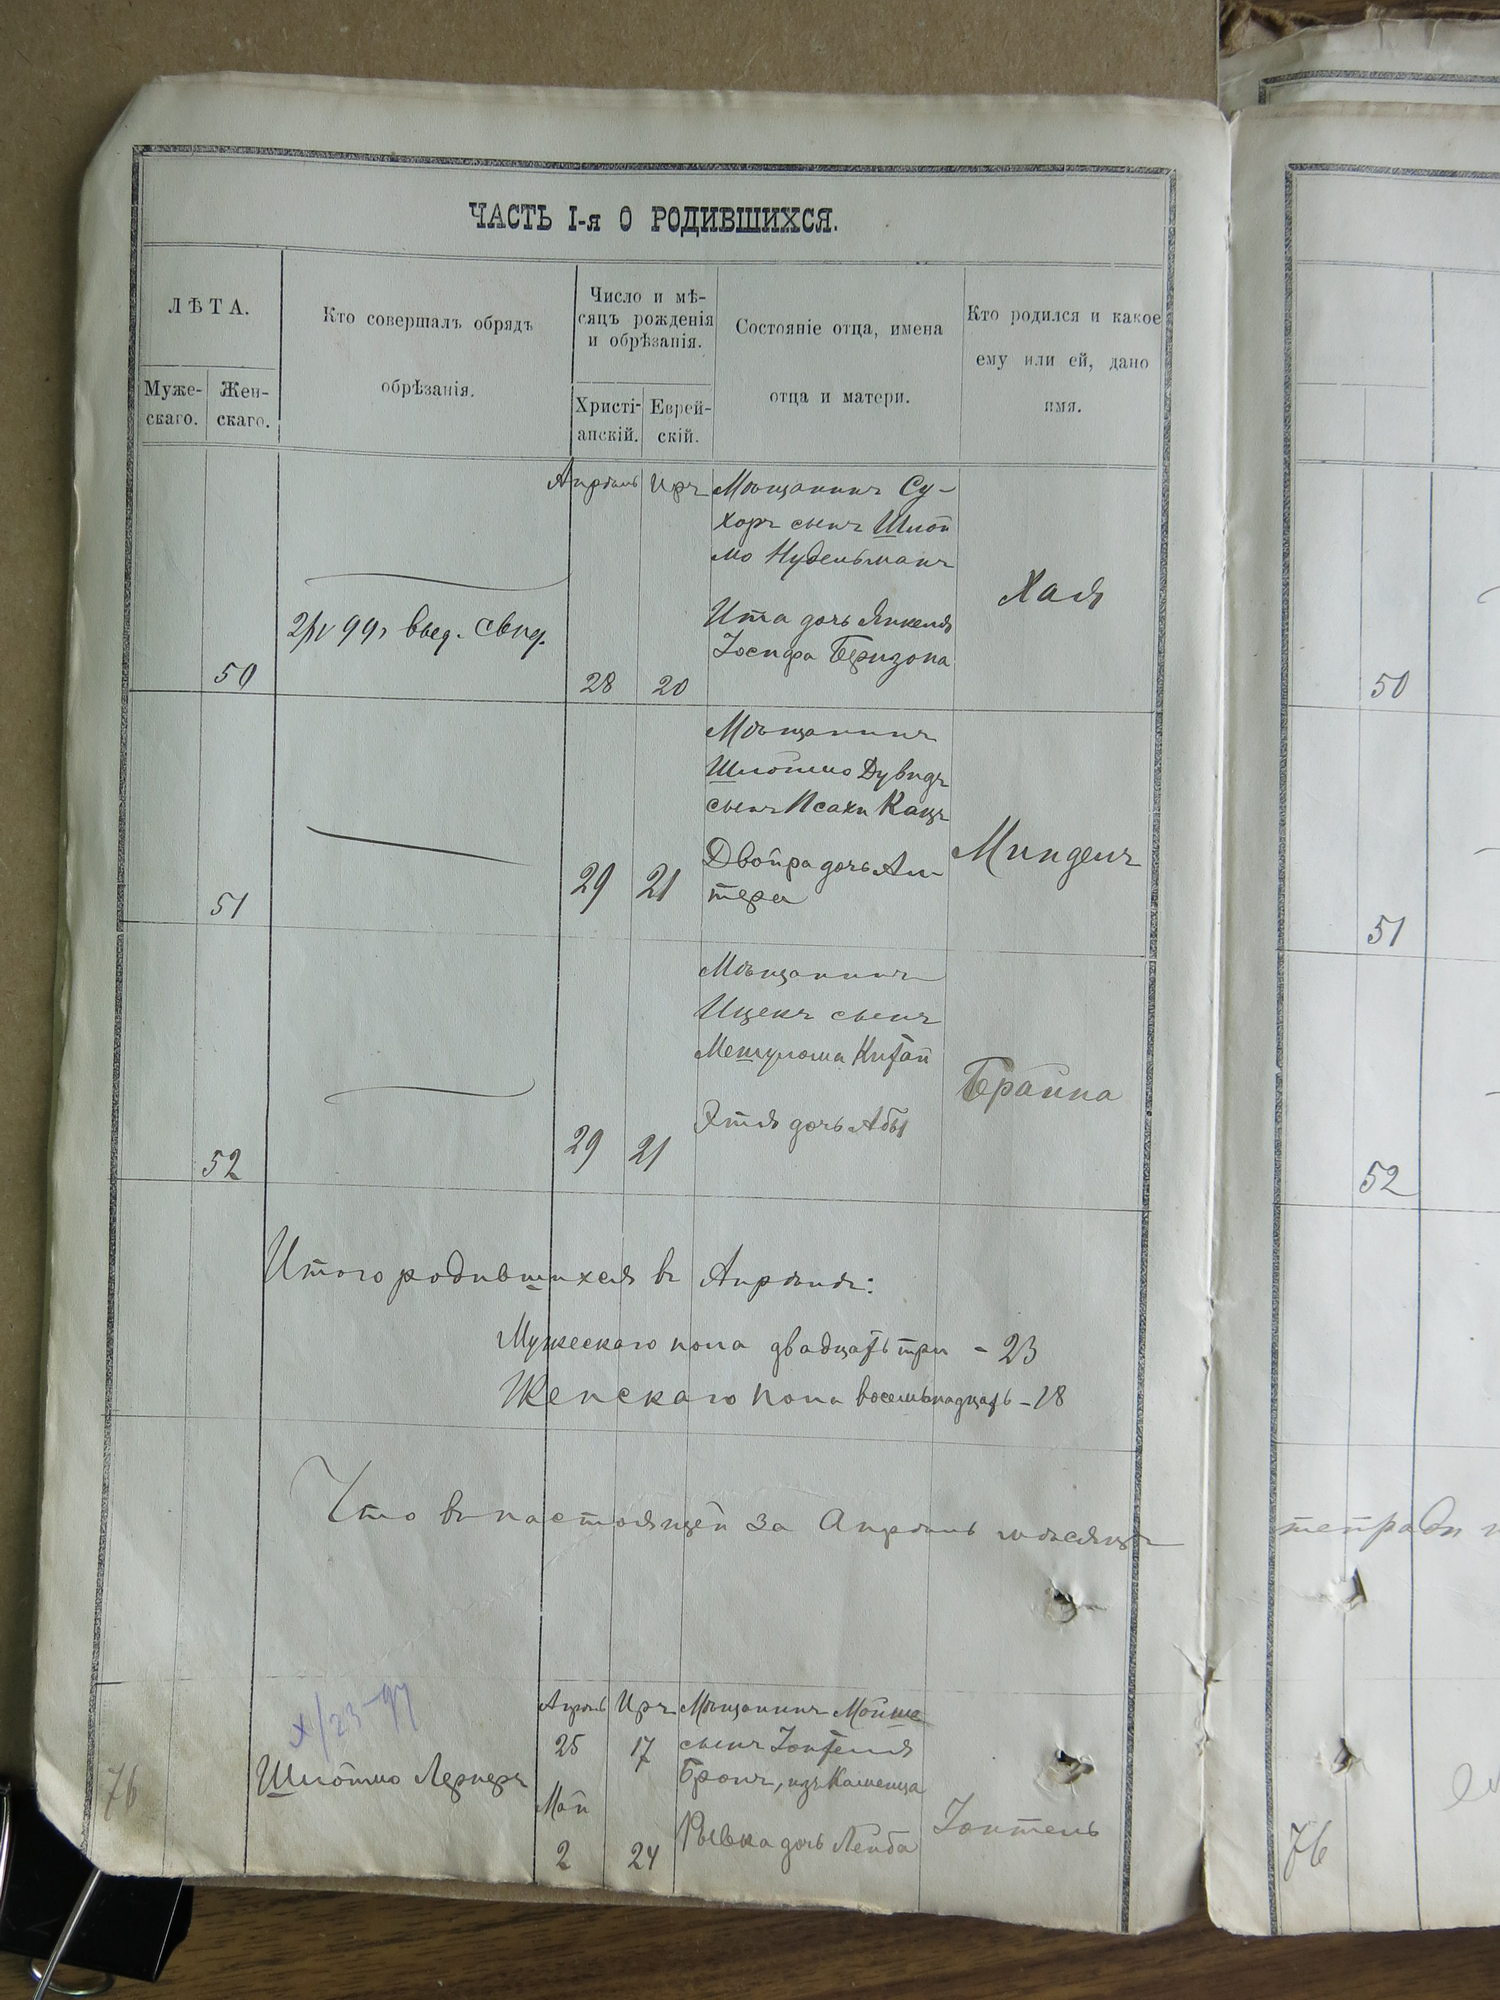 ЧАСТЬ I-я О РОДИВШИХСЯ.
ЛѢТА.
Муже-
скаго.
Жен-
скаго.
Кто совершалъ обрядъ
обрѣзанія.
Число и мѣ-
сяцъ рожденія
и обрѣзанія.
Христі-
анскій.
Еврей-
скій.
Состояніе отца, имена
отца и матери.
Кто родился и какое
ему или ей, дано
имя.
50
99 г выд. свид.
Апрѣль
28
Иръ
20
Мѣщанинъ Су-
харъ сынъ Шлой
мо Нудельманъ
Ита дочь Янкеля
Іосифа Беризона
Хая
51
29
21
Мѣщанинъ
Шлоймо Дувидъ
сынъ Исахи Кацъ
Двойра дочь Аль-
тера
Миндель
52
29
21
Мѣщанинъ
Ицекъ сынъ
Мешулома Китай
Этля дочь Абы
Брайна
Итого родившихся въ Апрѣлѣ:
Мужескаго пола двадцать три - 23
Женскаго пола восемьнадцать - 18
Что въ настоящей за Апрѣль мѣсяцъ
76
X/23 97
Шлоймо Лернеръ
Апрѣль
25
Май
2
Иръ
17
24
Мѣщанинъ Мойше
сынъ Іонтеля
Бронъ, изъ Каменца
Рывка дочь Лейба
Іонтель
50
51
52
тетради
76